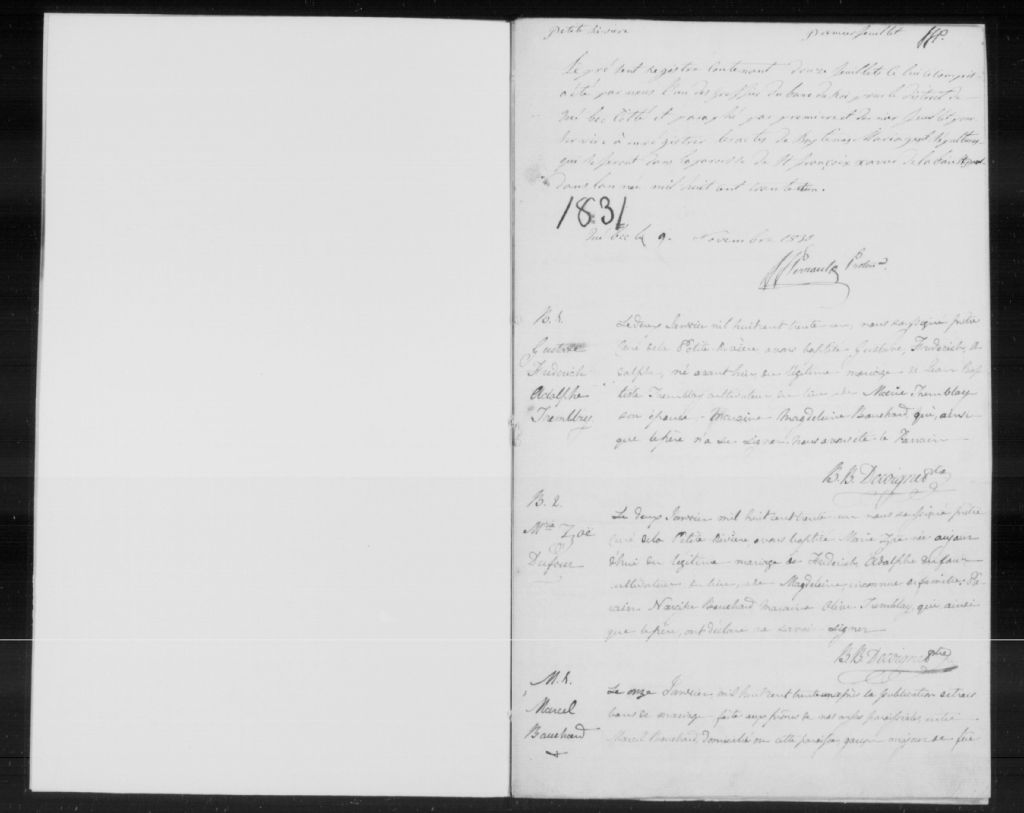 Petite Rivière Premier feuillet
Le présent Registre contenant douze feuillets le lui compris
a été par nous l'un des greffiers du banc du Roi pour le district de
Québec Cotté et paraphé par premier et dernier feuillet pour
servir à enrégistrer les actes de Baptêmes Mariages et Sépultures
qui se feront dans la paroisse de St françois xavier de la
dans l'année mil huit cent trente et un.
1831
Québec le 9. Novembre 1831
Perrault Proton.
B. 1.
Gustave
Frederich
Adolphe
Tremblay
Le deux Janvier mil huit cent trente un, nous soussigné prêtre
Curé de la Petite Rivière avons baptisé Gustave, Frederich, A
dolphe, né avant hier du légitime mariage de Jean Bap
tiste Tremblay cultivateur du lieu, et de Marie Tremblay
son épouse. Maraine Magdeleine Bouchard qui, ainsi
que le père n'a su signer.
B. B. Decoigne Ptre
B. 2.
Mrie Zoé
Dufour
Le deux Janvier mil huit cent trente un nous soussigné prêtre
Curé de la Petite Rivière, avons baptisé Marie Zoé née aujour
d'hui du légitime mariage de Frederich Adolphe Dufour
cultivateur du lieu, et de Magdeleine, inconnue de famille. Pa
rain Narcisse Bouchard Maraine Olive Tremblay, qui ainsi
que le père, ont déclaré ne savoir signer
B. B. Decoigne Ptre
M. 1.
Marcel
Bouchard
Le onze Janvier, mil huit cent trente un après la publication de trois
bans de mariage faite aux prônes de nos messes paroissiales entre
Marcel Bouchard domicilié en cette paroisse garçon majeur de feu